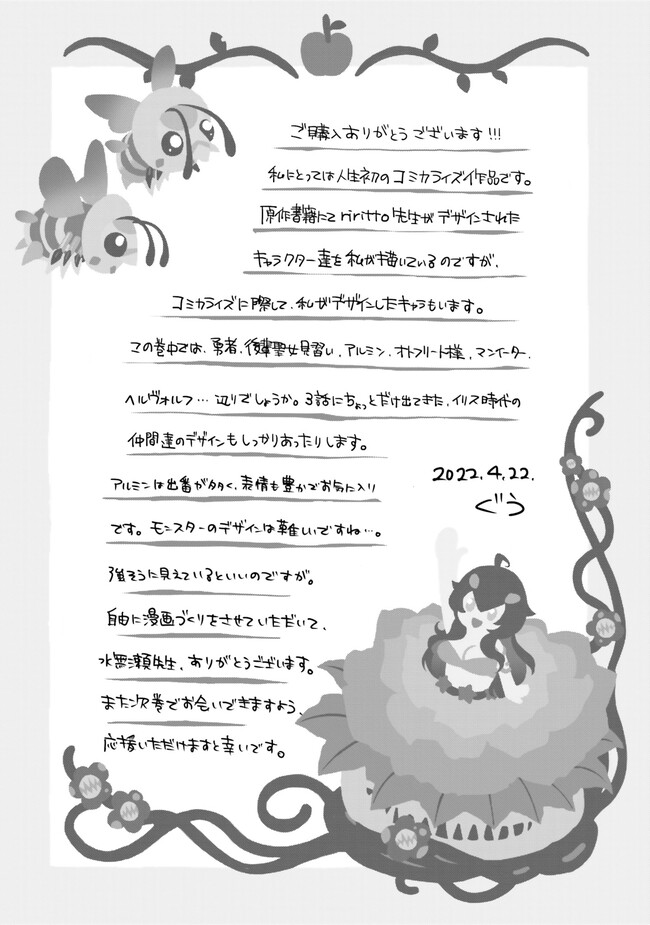 ご購入ありがとうございます!!!
私にとっては人生初のコミカライズ作品です。
原作書籍にてriritto先生がデザインされた
キャラクター達を私が描いているのですが、
コミカライズに際して、私がデザインしたキャラもいます。
この巻中では、勇者、後輩聖女見習い、アルミン、オトフリート様、マンイーター、
ヘルヴォルフ…辺りでしょうか。3話にちょっとだけ出てきた、イリス時代の
仲間達のデザインもしっかりあったりします。
アルミンは出番が多く、表情も豊かでお気に入り
です。モンスターのデザインは難しいですね…。
強そうに見えているといいのですが。
自由に漫画づくりをさせていただいて、
水無瀬先生、ありがとうございます。
また次巻でお会いできますよう、
応援いただけますと幸いです。
2022.4.22.
ぐう